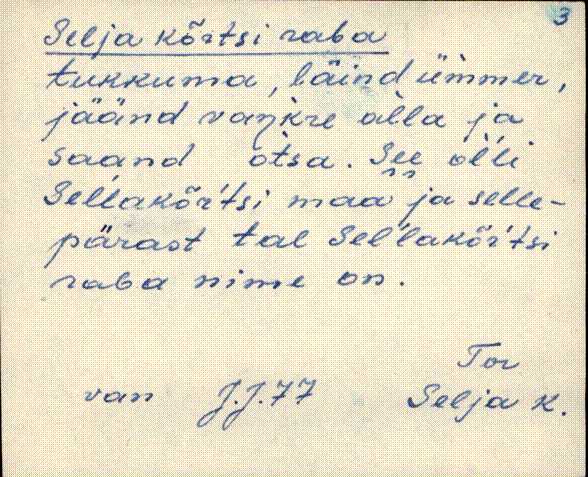 3
Selja kõrtsi raba
tukkuma, läind ümmer,
jäänd vaŋkre alla ja
saand otsa. See olli
Sellakõrtsi maa ja selle-
pärast tal Sellakõrtsi
raba nime on.
Tor
van J.J.77 Selja k.